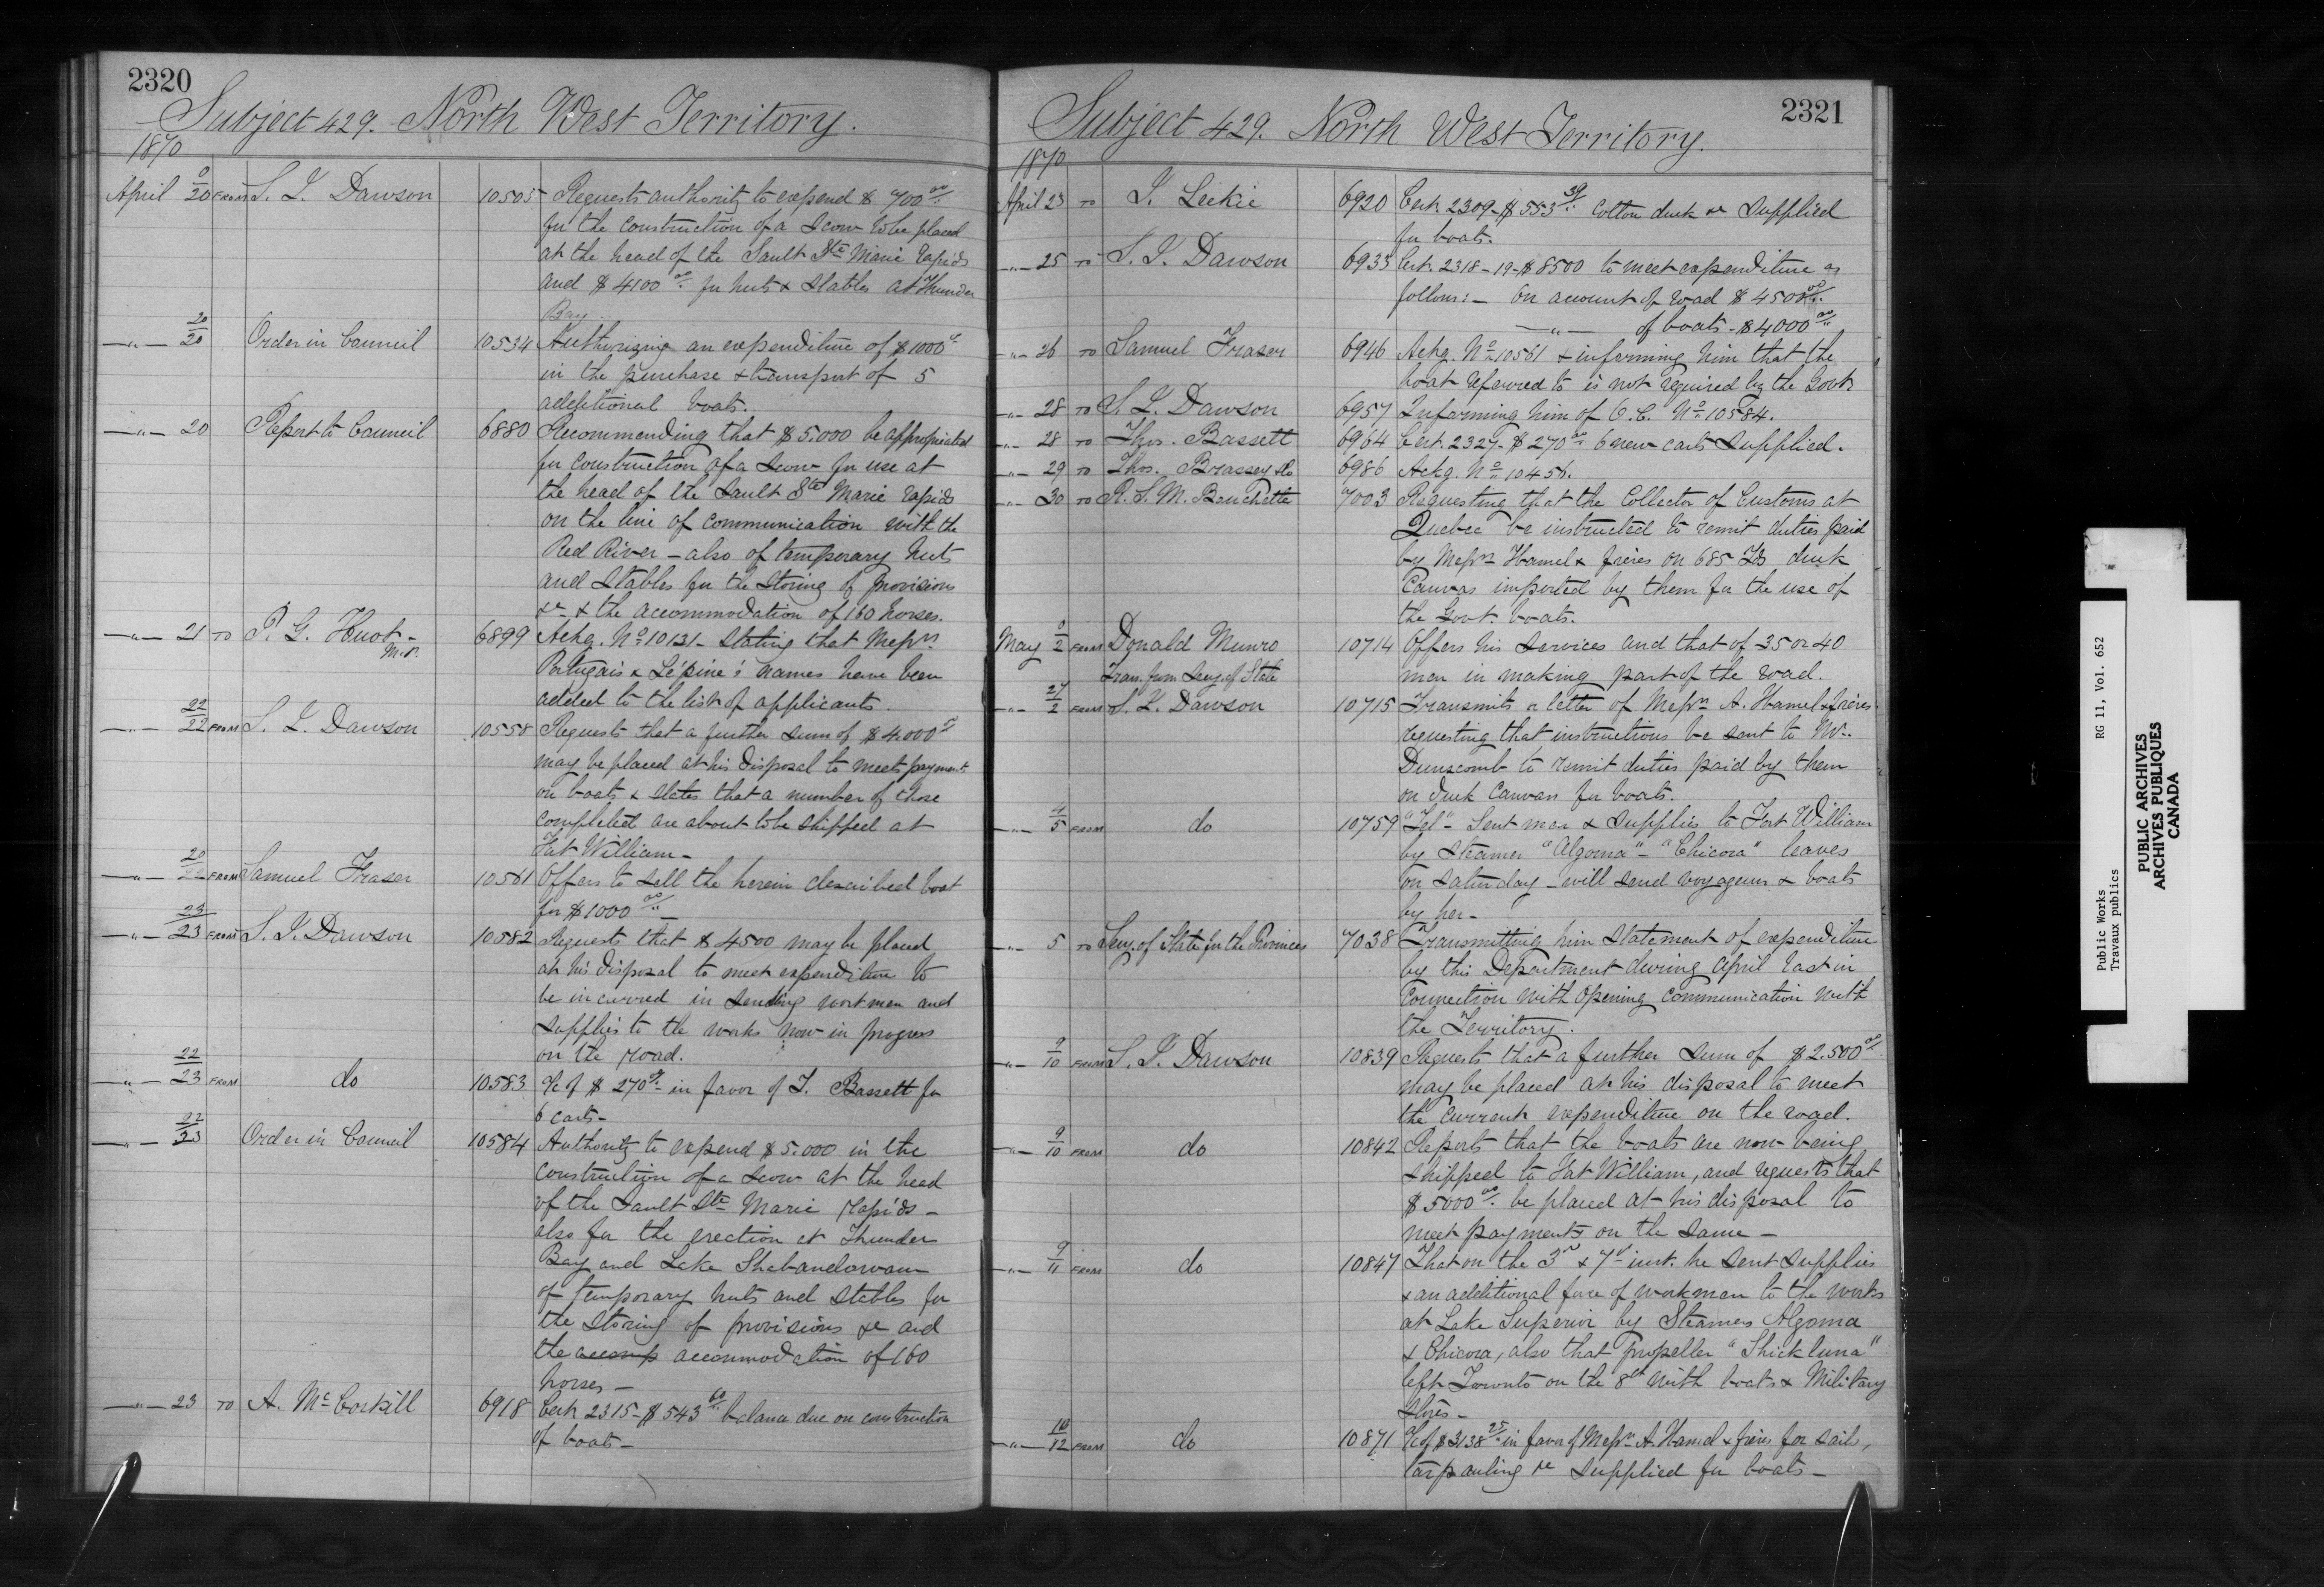 2320
Subject 429. North West Territory.
1870
April 20 FROM S. J. Dawson 10505 Requests authority to expend $ 700 00/..
for the construction of a Scow to be placed
at the head of the Sault Ste Marie rapids
and $4100 00/.. for huts & stables at Thunder
Bay.
—"— 20/20 Order in Council 10534 Authorizing an expenditure of $1000
in the purchase & transport of 5
additional boats.
—"— 20 Report to Council 6880 Recommending that $5.000 be appropriated
for construction of a Scow for use at
the head of the Sault Ste Marie rapids
on the line of communication with the
Red River – also of temporary huts
and stables for the storing of provisions
&c & the accommodation of 160 horses.
—"— 21 TO P. G. Huot – M.P. 6899 Ackg. No 10131 – stating that Messrs
Portugais & Lépine's names have been
added to the list of applicants.
—"— 22/22 FROM S. J. Dawson 10558 Requests that a further sum of $4.000
may be placed at his disposal to meet payments
on boats & states that a number of those
completed are about to be shipped at
Fort William –
—"— 20/22 FROM Samuel Fraser 10561 Offers to sell the herein described boat
for $1000 00/.. –
—"— 23/23 FROM S. J. Dawson 10582 Requests that $ 4500 may be placed
at his disposal to meet expenditure to
be incurred in sending workmen and
supplies to the works now in progress
on the road.
—"— 22/23 FROM do 10583 a/c of $ 270 – in favor of T. Bassett for
6 carts –
—"— 22/23 Order in Council 10584 Authority to expend $5.000 in the
construction of a scow at the head
of the Sault Ste Marie Rapids –
also for the erection at Thunder
Bay and Lake Shebandowan
of temporary huts and stables for
the storing of provisions &c and
the accomp accommodation of 160
horses –
—"— 23 TO A. Mc Corkill 6918 Cert. 2315 – $543 60/.. balance due on construction
of boats –
2321
Subject 429. North West Territory.
1870
April 23 TO J. Leckie 6920 Cert. 2309 – $553 39/.. Cotton duck &c supplied
for boats.
—"— 25 TO S. J. Dawson 6933 Cert. 2318–19 – $8500 to meet expenditure as
follows: – On account of road $4500 00/..
—"— of boats – $4000 00/..
—"— 26 TO Samuel Fraser 6946 Ackg. No 10561 & informing him that the
boat referred to is not required by the Govt.
—"— 28 TO S. J. Dawson 6957 Informing him of O.C. No 10584.
—"— 28 TO Thos. Bassett 6964 Cert. 2327 – $270 00/.. 6 new carts supplied.
—"— 29 TO Thos. Brassey & Co 6986 Ackg. No 10456.
—"— 30 TO R. S. M. Bouchette 7003 Requesting that the Collector of Customs at
Quebec be instructed to remit duties paid
by Messrs Hamel & frères on 685 yds duck
Canvas imported by them for the use of
the Govt. boats.
May 2 FROM Donald Munro 10714 Offers his services and that of 35 or 40
Tran. from Secy. of State men in making part of the road.
—"— 27/2 FROM S. J. Dawson 10715 Transmits a letter of Messrs A. Hamel & frères
requesting that instructions be sent to Mr.
Dunscomb to remit duties paid by them
on duck Canvas for boats.
—"— 4/5 FROM do 10759 "Tel" – Sent men & supplies to Fort William
by Steamer "Algoma" – "Chicora" leaves
on Saturday – will send voyageurs & boats
by her –
—"— 5 TO Secy. of State for the Provinces 7038 Transmitting him statement of expenditure
by this Department during April last in
connection with opening communication with
the Territory.
—"— 9/10 FROM S. J. Dawson 10839 Requests that a further sum of $2.500 00/..
may be placed at his disposal to meet
the current expenditure on the road.
—"— 9/10 FROM do 10842 Reports that the boats are now being
shipped to Fort William, and requests that
$5000 00/.. be placed at his disposal to
meet payments on the same –
—"— 9/11 FROM do 10847 That on the 3rd & 7th inst. he sent supplies
& an additional force of workmen to the works
at Lake Superior by Steamers Algoma
& Chicora, also that propeller "Shickluna"
left Toronto on the 8th with boats & Military
Stores –
—"— 10/12 FROM do 10871 a/c of $3138 25/.. in favor of Messrs A. Hamel & frères for sails,
tarpauling &c supplied for boats –
Public Works RG 11, Vol. 652
Travaux publics
PUBLIC ARCHIVES
ARCHIVES PUBLIQUES
CANADA